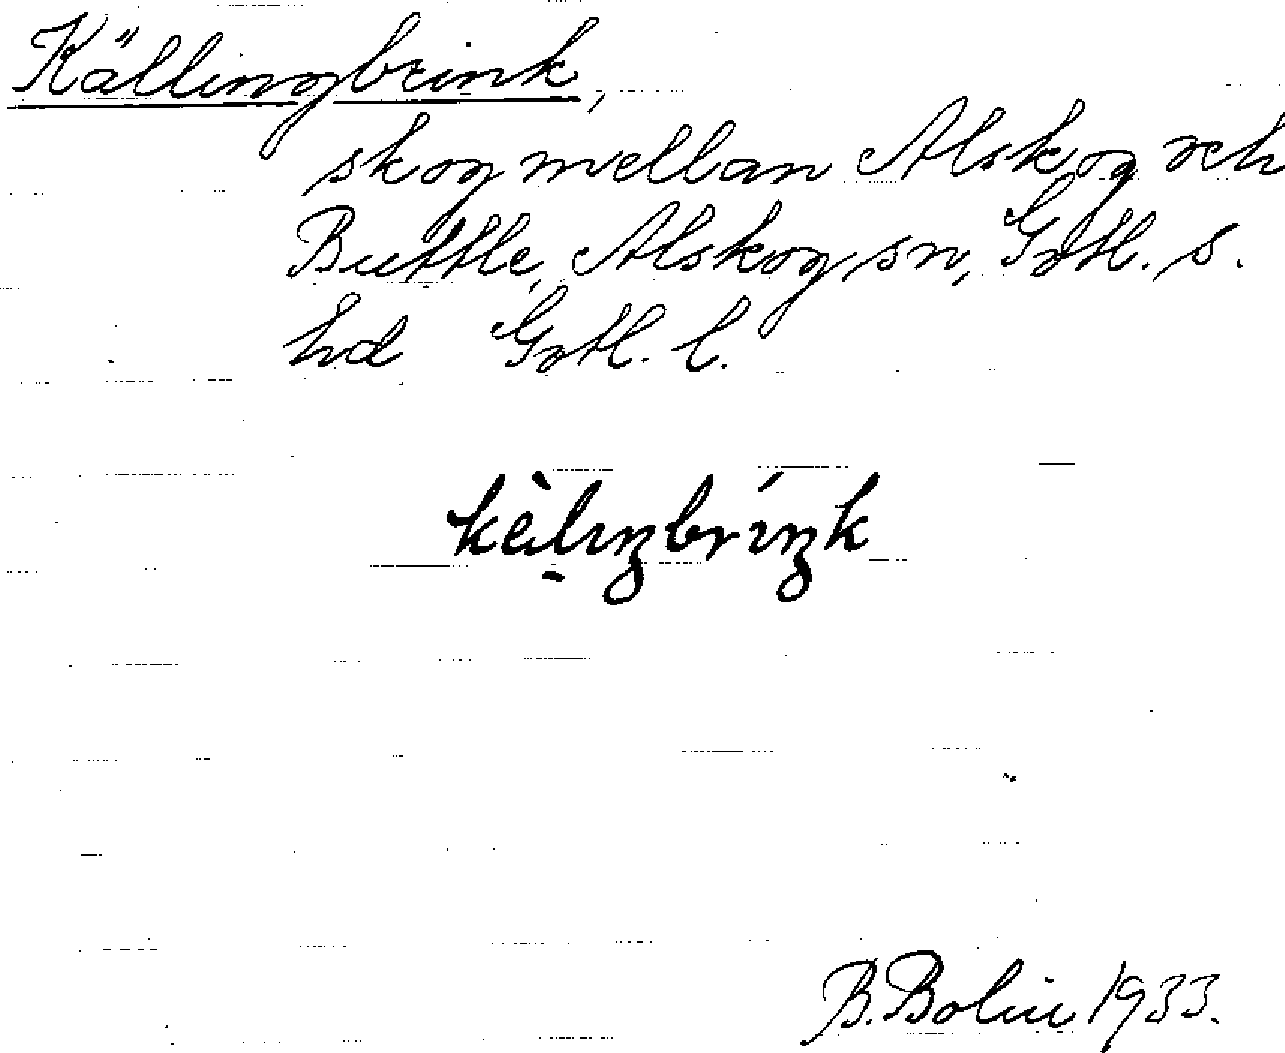 Källingbrink,
skog mellan Alskog och
Buttle, Alskog sn, Gotl. s.
hd Gotl. l.
B. Bolin 1933.